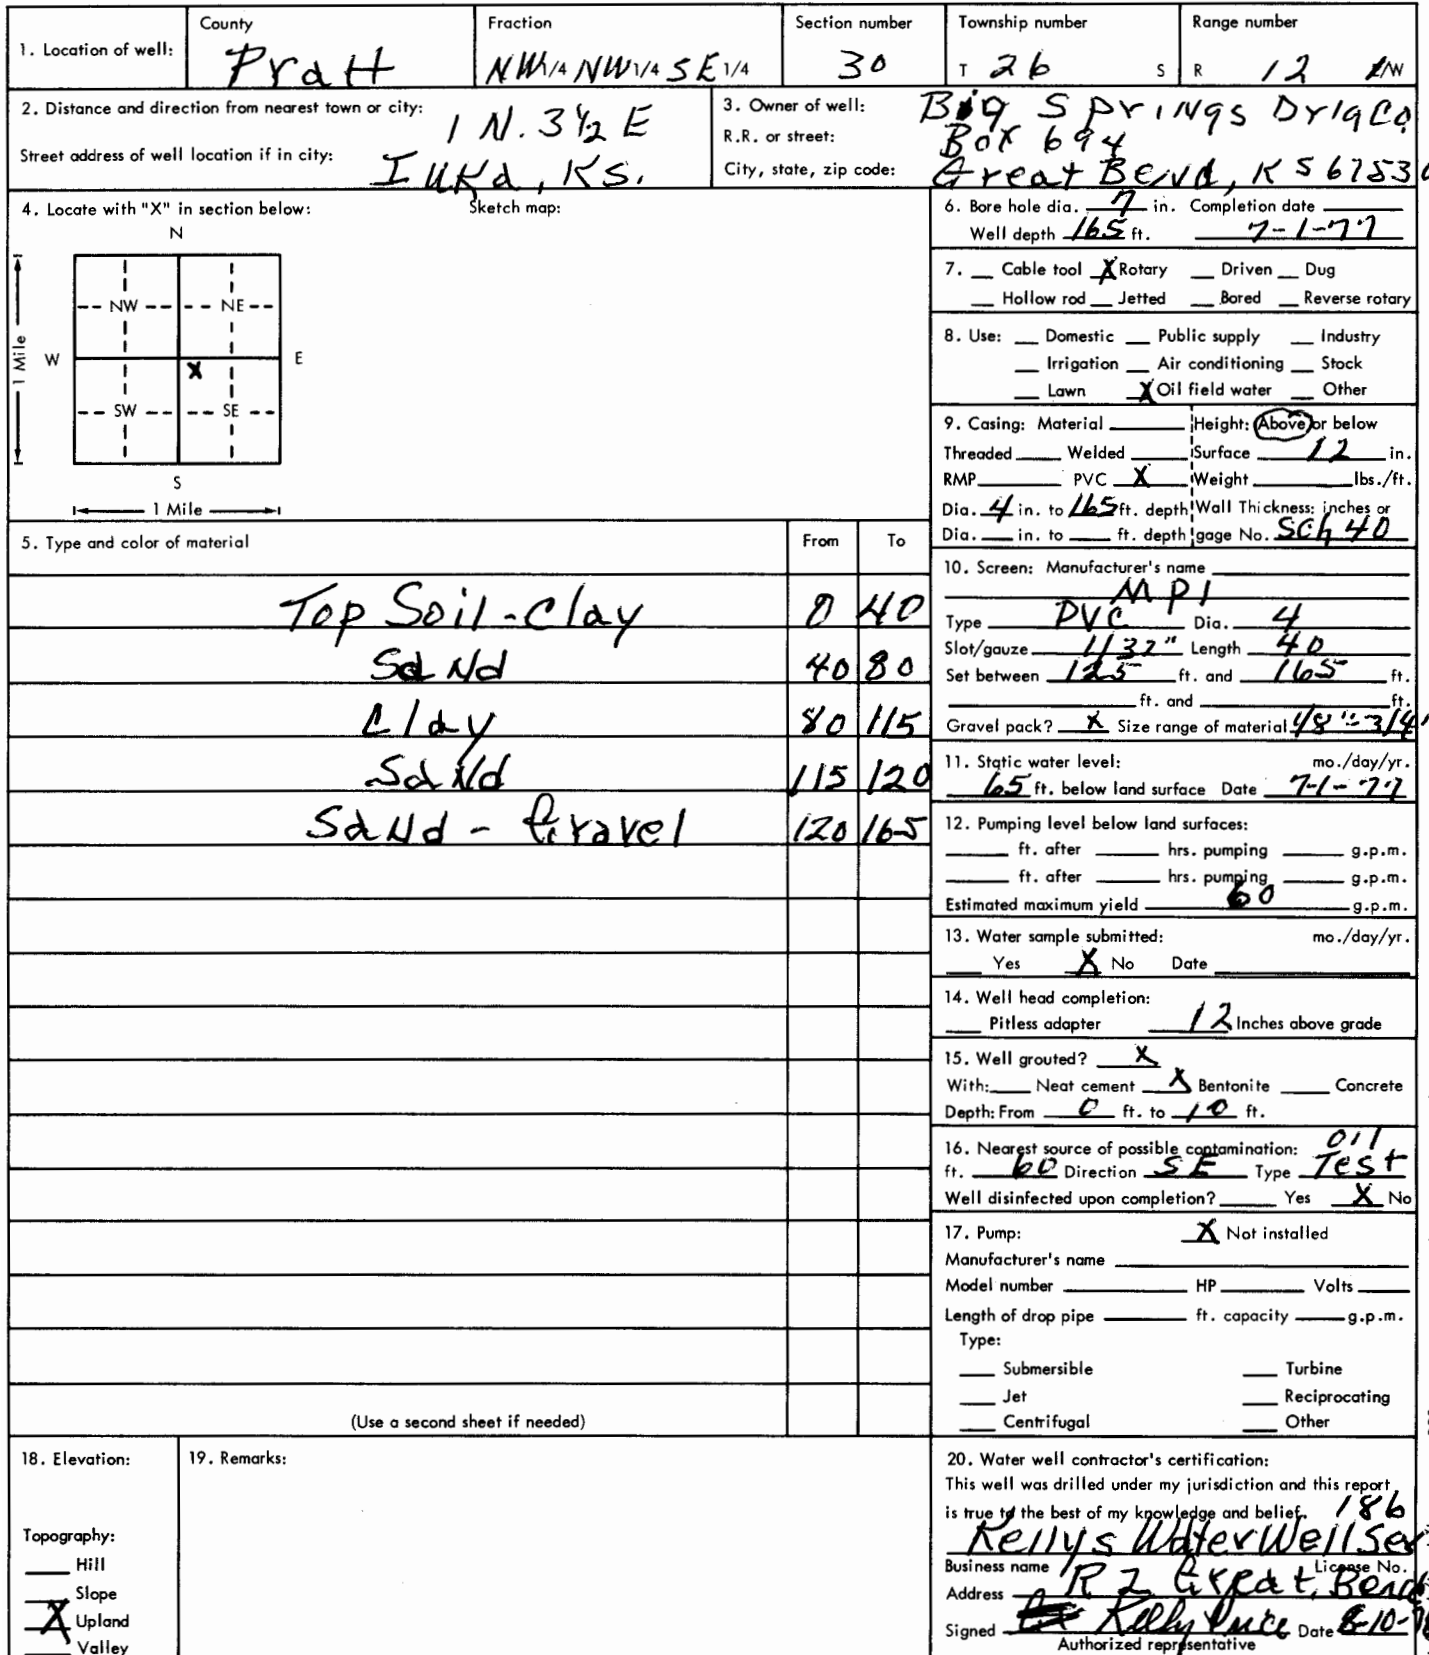 1. Location of well: County Pratt Fraction NW1/4 NW1/4 SE1/4 Section number 30 Township number T 26 S Range number R 12 E/W
2. Distance and direction from nearest town or city: 1 N. 3 1/2 E
Street address of well location if in city: IUKa, KS.
3. Owner of well: Big Springs Drlg Co
R.R. or street: Box 694
City, state, zip code: Great Bend, KS 67530
4. Locate with "X" in section below: Sketch map:
N
NW NE
W E
X
SW SE
S
1 Mile
1 Mile
5. Type and color of material From To
Top Soil - Clay 0 40
Sand 40 80
Clay 80 115
Sand 115 120
Sand - Gravel 120 165
(Use a second sheet if needed)
6. Bore hole dia. 7 in. Completion date
Well depth 165 ft. 7-1-77
7. Cable tool X Rotary Driven Dug
Hollow rod Jetted Bored Reverse rotary
8. Use: Domestic Public supply Industry
Irrigation Air conditioning Stock
Lawn X Oil field water Other
9. Casing: Material Height: Above or below
Threaded Welded Surface 12 in.
RMP PVC X Weight lbs./ft.
Dia. 4 in. to 165 ft. depth Wall Thickness: inches or
Dia. in. to ft. depth gage No. Sch 40
10. Screen: Manufacturer's name
MPI
Type PVC Dia. 4
Slot/gauze 1/32" Length 40
Set between 125 ft. and 165 ft.
ft. and ft.
Gravel pack? X Size range of material 1/8"-3/4"
11. Static water level: mo./day/yr.
65 ft. below land surface Date 7-1-77
12. Pumping level below land surfaces:
ft. after hrs. pumping g.p.m.
ft. after hrs. pumping g.p.m.
Estimated maximum yield 60 g.p.m.
13. Water sample submitted: mo./day/yr.
Yes X No Date
14. Well head completion:
Pitless adapter 12 Inches above grade
15. Well grouted? X
With: Neat cement X Bentonite Concrete
Depth: From 0 ft. to 10 ft.
16. Nearest source of possible contamination: Oil
ft. 60 Direction SE Type Test
Well disinfected upon completion? Yes X No
17. Pump: X Not installed
Manufacturer's name
Model number HP Volts
Length of drop pipe ft. capacity g.p.m.
Type:
Submersible Turbine
Jet Reciprocating
Centrifugal Other
18. Elevation:
Topography:
Hill
Slope
X Upland
Valley
19. Remarks:
20. Water well contractor's certification:
This well was drilled under my jurisdiction and this report
is true to the best of my knowledge and belief. 186
Kellys Water Well Ser
Business name License No.
Address R 2 Great Bend
Signed Kelly Price Date 8-10-
Authorized representative